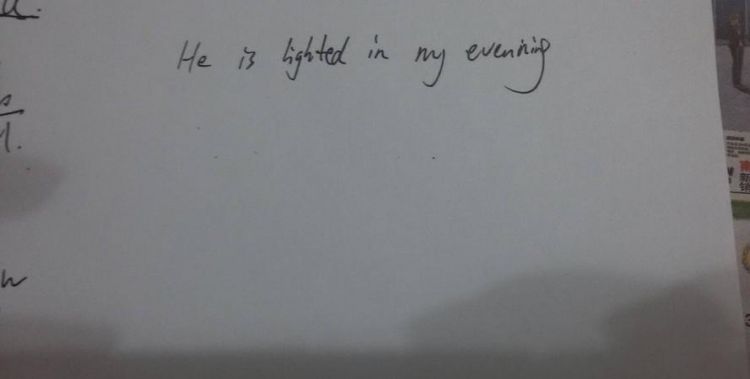 He is lighted in my evenning